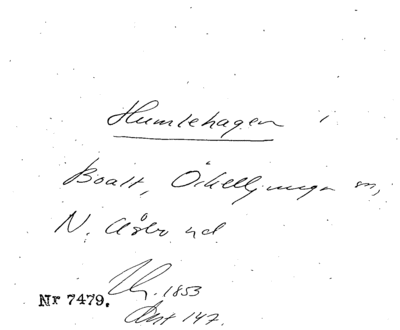 Humlehagen i
Boalt, Örkelljunga sn,
N. Åsbo hd
Nr 7479. 1853
Akt 147.